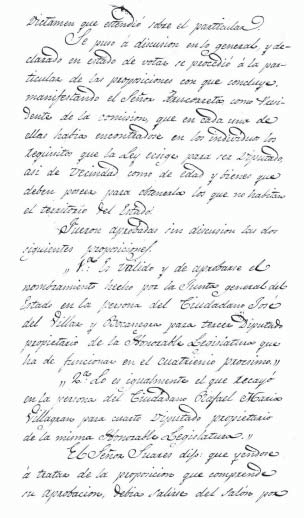 Dictamen que estendió sobre el particular
Se puso á discusion en lo general, y de-
clarado en estado de votar se procedió á la par-
ticular de las proposiciones con que concluye,
manifestando el Señor como Presi-
dente de la comision, que en cada uno de
ellos habia encontradose en los individuos los
requisitos que la Ley exige para ser Diputado,
asi de vecindad como de edad y bienes que
deben poseer para obtenerla los que no habitan
el territorio del Estado.
Fueron aprobadas sin discusion las dos
siguientes proposiciones.
„1.ª Es válido y de aprobarse el
nombramiento hecho por la Junta general del
Estado en la persona del Ciudadano José
del Villar y Bocanegra para tercer Diputado
propietario de la Honorable Legislatura que
ha de funcionar en el cuatrienio procsimo.„
„2.ª Lo es igualmente el que recayó
en la persona del Ciudadano Rafael Maria
Villagran para cuarto Diputado propietario
de la misma Honorable Legislatura.„
El Señor Suares dijo: que yendose
á tratar de la proposicion que comprende
su aprobacion, debia salirse del Salon por